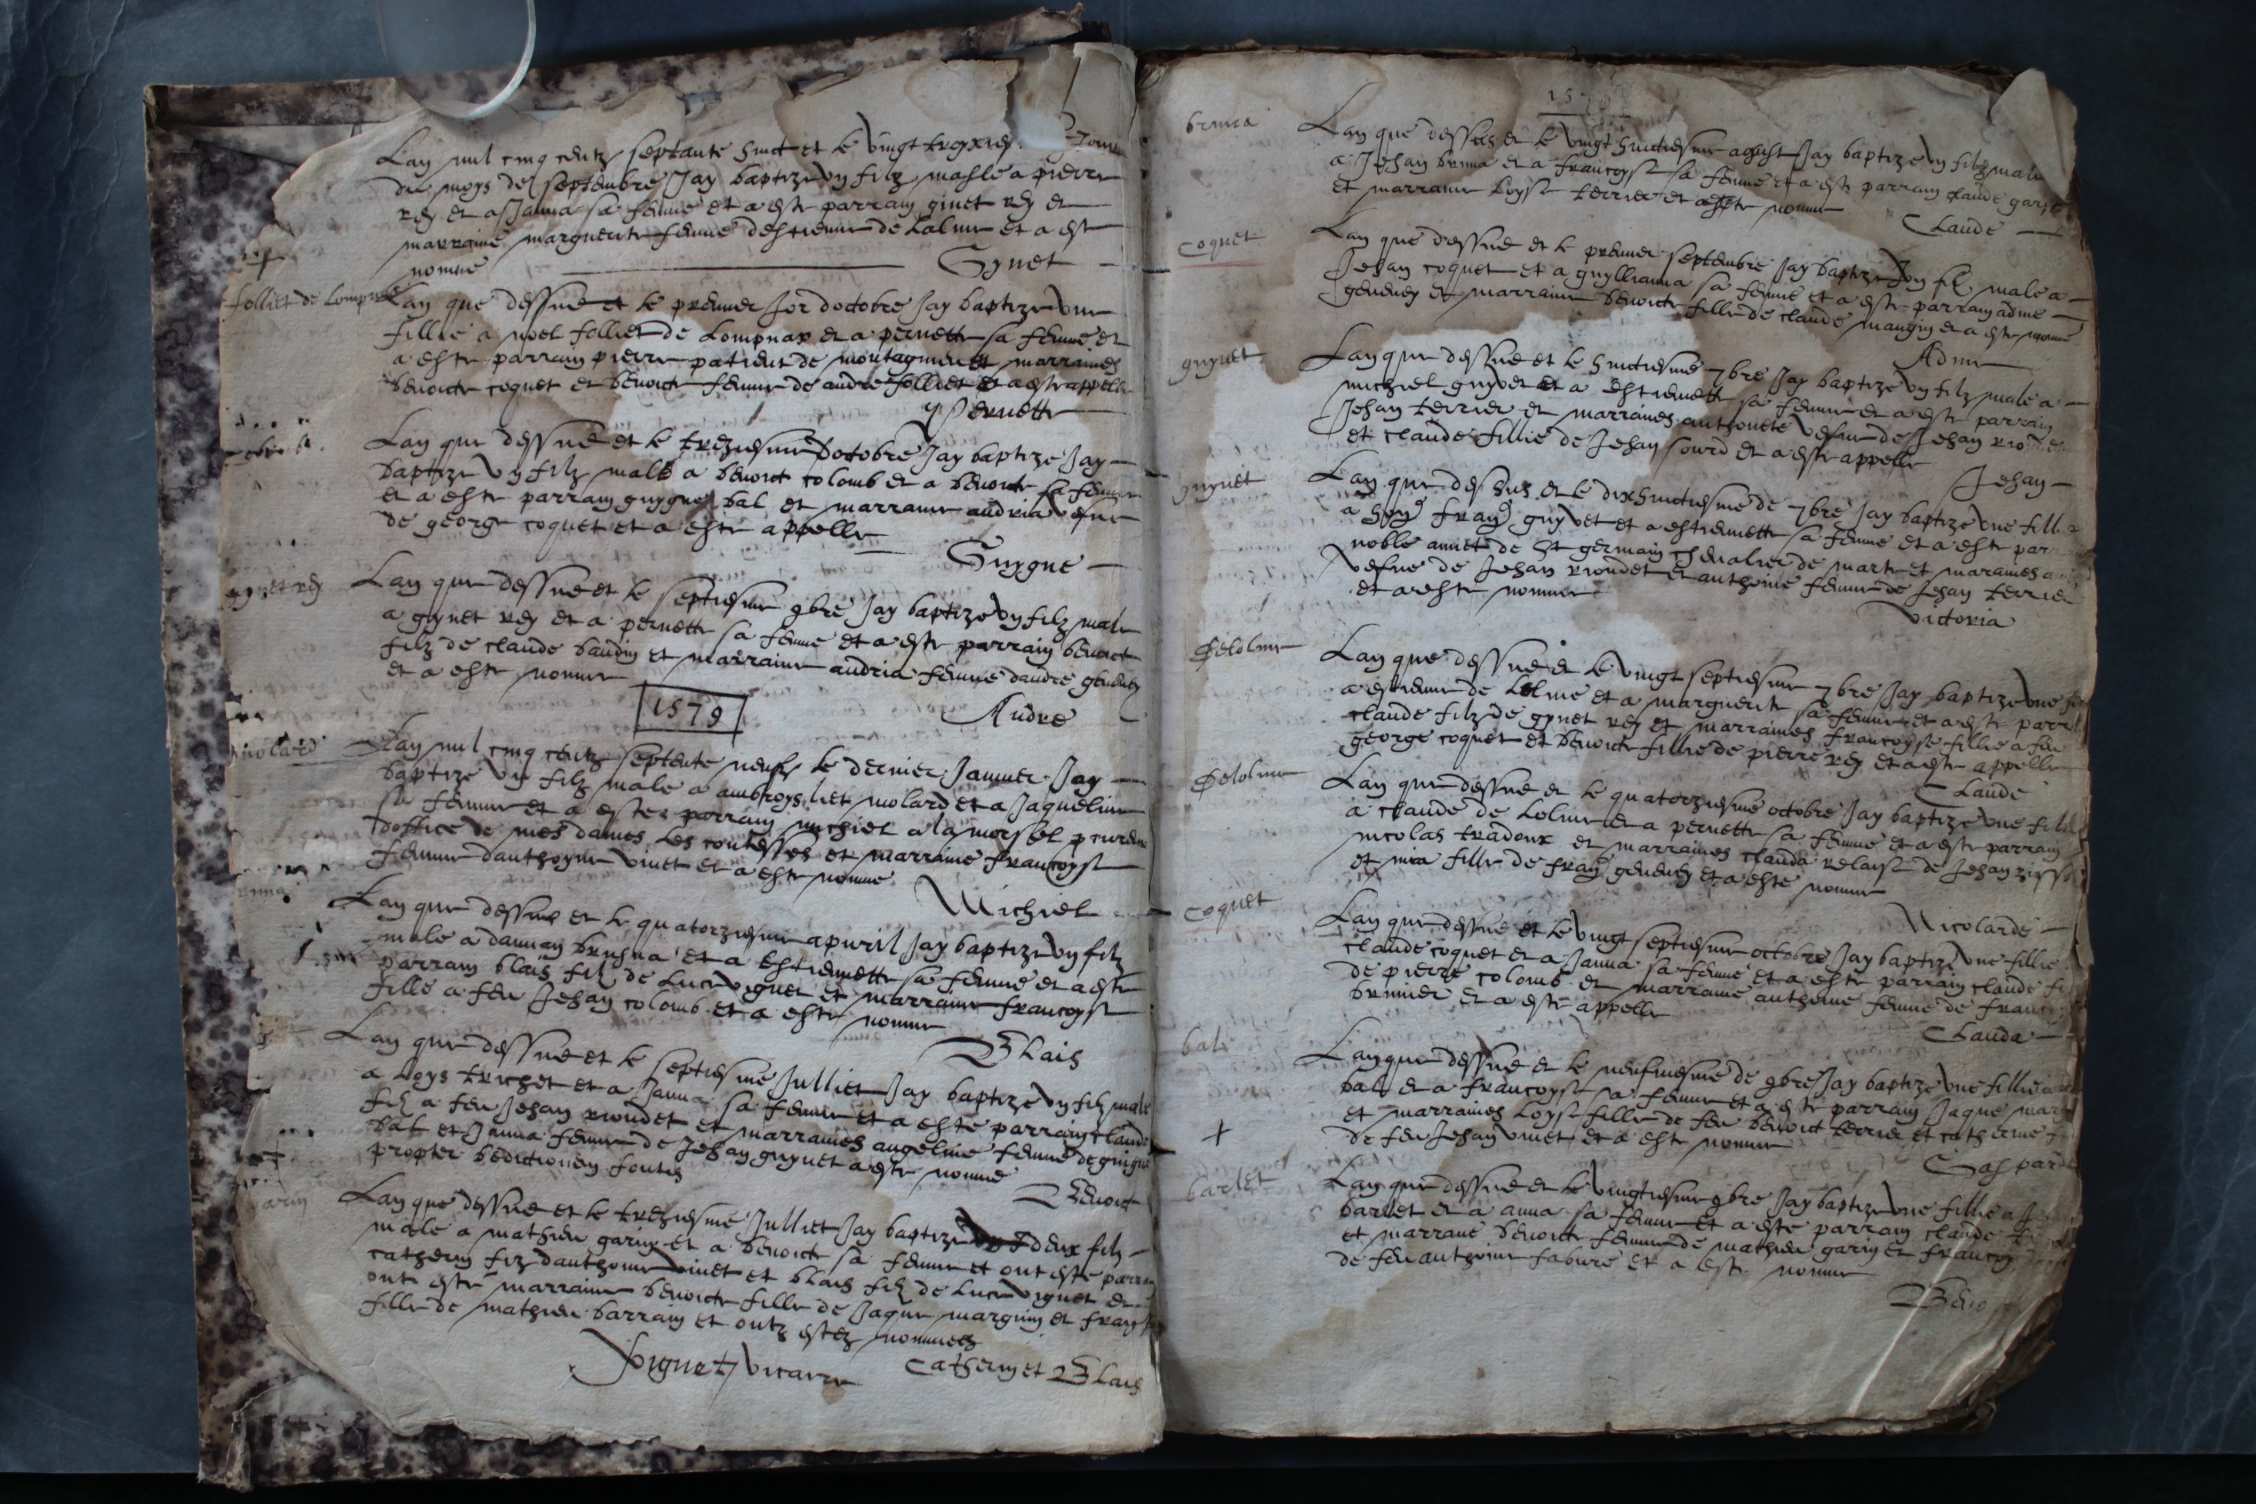 Lan mil cinq centz septante huict et le vingt troxies. Jour
du moys de septembre Jay baptize ung filz masle a pierre
rey et a Janna sa femme et a este parrain ginet rey et
marraine marguerite femme destienne de Lolme et a est
nomme Gynet
folliet de Lompnas
Lan que dessus et le premier Jor doctobre Jay baptize une
fillie a noel folliet de Lompnax et a pernette sa femme et
a este parrain pierre patient de montagnieu et marraines
benoicte coquet et benoicte femme de andre folliet et a este appelle
Pernette
Lan que dessus et le treziesme doctobre Jay baptize Jay
baptize ung filz male a benoict colomb et a benoicte sa femme
et a este parrain guygue bal et marraine andria vefue
de george coquet et a este appelle
Guygue
gynet rey
Lan que dessus et le septiesme 9bre Jay baptize ung filz male
a gynet rey et a pernette sa femme et a este parrain benoict
filz de claude baudin et marraine andria femme dandre genevey
et a este nomme
Andre
1579
molard
Lan mil cinq centz septente neufz le dernier Janvier Jay
baptize ung filz male a ambroys liet molard et a Jaquelline
sa femme et a este parrain michiel procureur
doffice de mes dames les contesses et marraine francoyse
femme danthoyne vinet et a este nomme
Michiel
Lan que dessus et le quatorziesme apuril Jay baptize ung filz
male a damian bruna et a estiennette sa femme et a este
parrain blais filz de Luc viguet et marraine francoyse
fille a feu Jehan colomb et a este nomme
Blais
Lan que dessus et le septiesme Julliet Jay baptize ung filz male
a Loys trichet et a Janna sa femme et a este parrain claude
filz a feu Jehan riondet et marraines angeline femme de guigue
bal et Janna femme de Jehan guynet a este nomme
propter bedictionem fontis
Benoict
garin
Lan que dessus et le treziesme Julliet Jay baptize deux filz
male a mathieu garin et a benoicte sa femme et ont este parrain
catherin filz danthoine vinet et blais filz de Luc viguet et
ont este marraine benoicte fille de Jaque marguin et
fille de mathieu barrain et ontz estez nommez
Catherin et Blais
viguet vicaire
157
bruna
Lan que dessus et le vingt huictiesme aoust Jay baptize ung filz male
a Jehan bruna et a francoyse sa femme et a este parrain claude garin
et marraine Loyse terrier et a este nomme
Claude
coquet
Lan que dessus et le premier septembre Jay baptize ung filz male a
Jehan coquet et a guyllianna sa femme et a este parrain adme
genevey et marraine benoicte fille de claude mangin et a este nomme
Adme
guynet
Lan que dessus et le huictiesme 7bre Jay baptize ung filz male a
michiel guynet et a estiennette sa femme et a este parrain
Jehan terrier et marraines anthonete vefue de Jehan riondet
et claude fillie de Jehan sourd et a este appelle
Jehan
guynet
Lan que dessus et le dixhuictiesme de 7bre Jay baptize une fillie
a franç guynet et a estiennette sa femme et a este par
noble amet de St germain chevalier de marte et maraines
vefue de Jehan riondet et anthoine femme de Jehan terrier
et a este nomme
Victoria
Delolme
Lan que dessus et le vingt septiesme 7bre Jay baptize une
a estienne de Lolme et a marguerite sa femme et a este parr
claude filz de gynet rey et marraines francoyse fillie a feu
george coquet et benoicte fillie de pierre rey et a este appelle
Claude
Delolme
Lan que dessus et le quatorziesme octobre Jay baptize une fillie
a claude de Lolme et a pernette sa femme et a este parrain
nicolas tradoux et marraines clauda relaisse de Jehan
et mia fille de franç genevey et a este nomme
Nicolarde
coquet
Lan que dessus et le vingt septiesme octobre Jay baptize une fillie
claude coquet et a Janna sa femme et a este parrain claude
de pierre colomb et marraine anthoine femme de franc
brunier et a este appelle
Clauda
bal
Lan que dessus et le neufuiesme de 9bre Jay baptize une fillie a
bal et a francoyse sa femme et a este parrain Jaque mar
et marraines Loyse fille de feu benoict terrier et catherine
de feu Jehan vinet et a este nomme
Gaspar
barlet
Lan que dessus et le vingtiesme 9bre Jay baptize une fillie a
barlet et a anna sa femme et a este parrain claude
et marraine benoicte femme de mathieu garin et francoy
de feu anthoine fabure et a este nomme
Beno